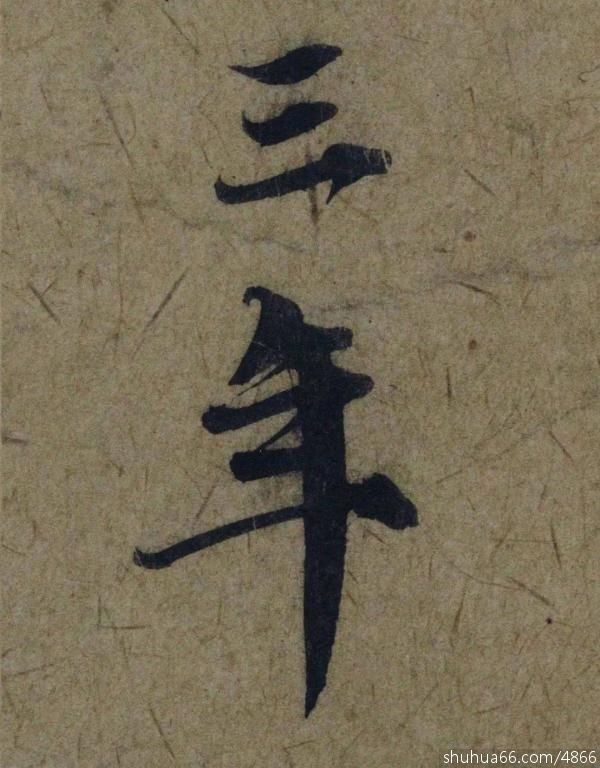 三年
shuhua66.com/4866